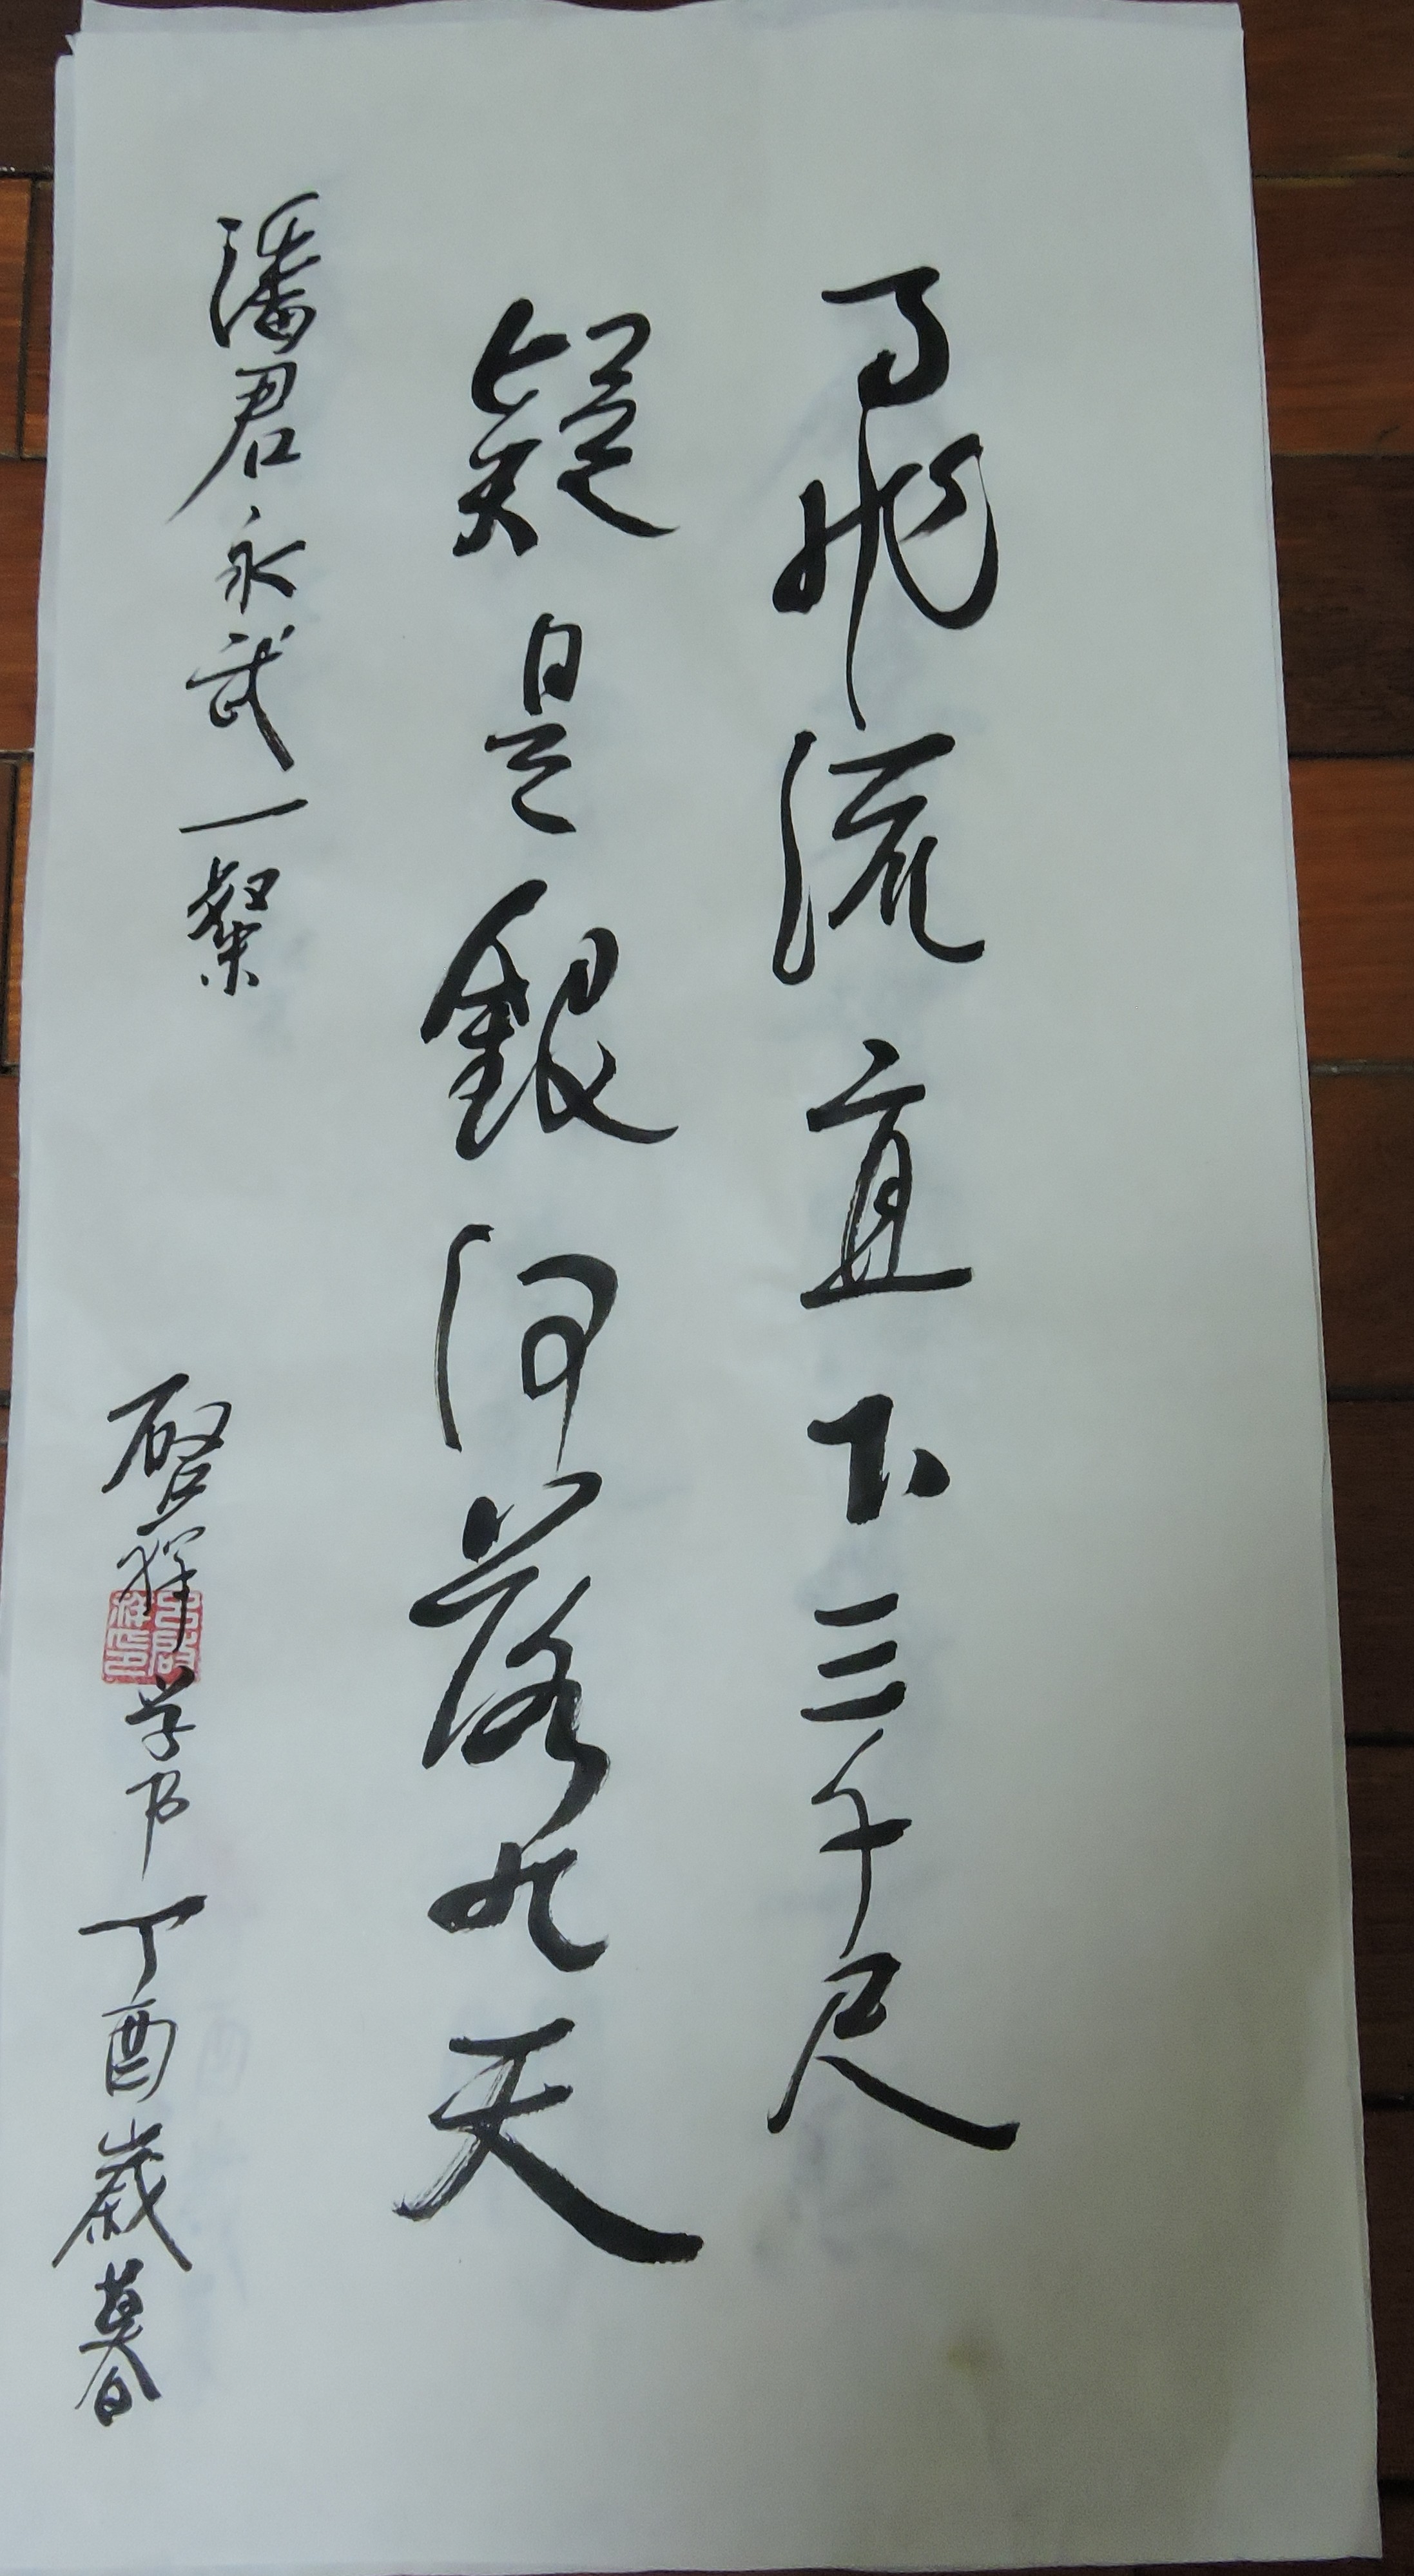 飛流直下三千尺
疑是銀河落九天
潘君永武一粲
啓祥学书丁酉歲暮